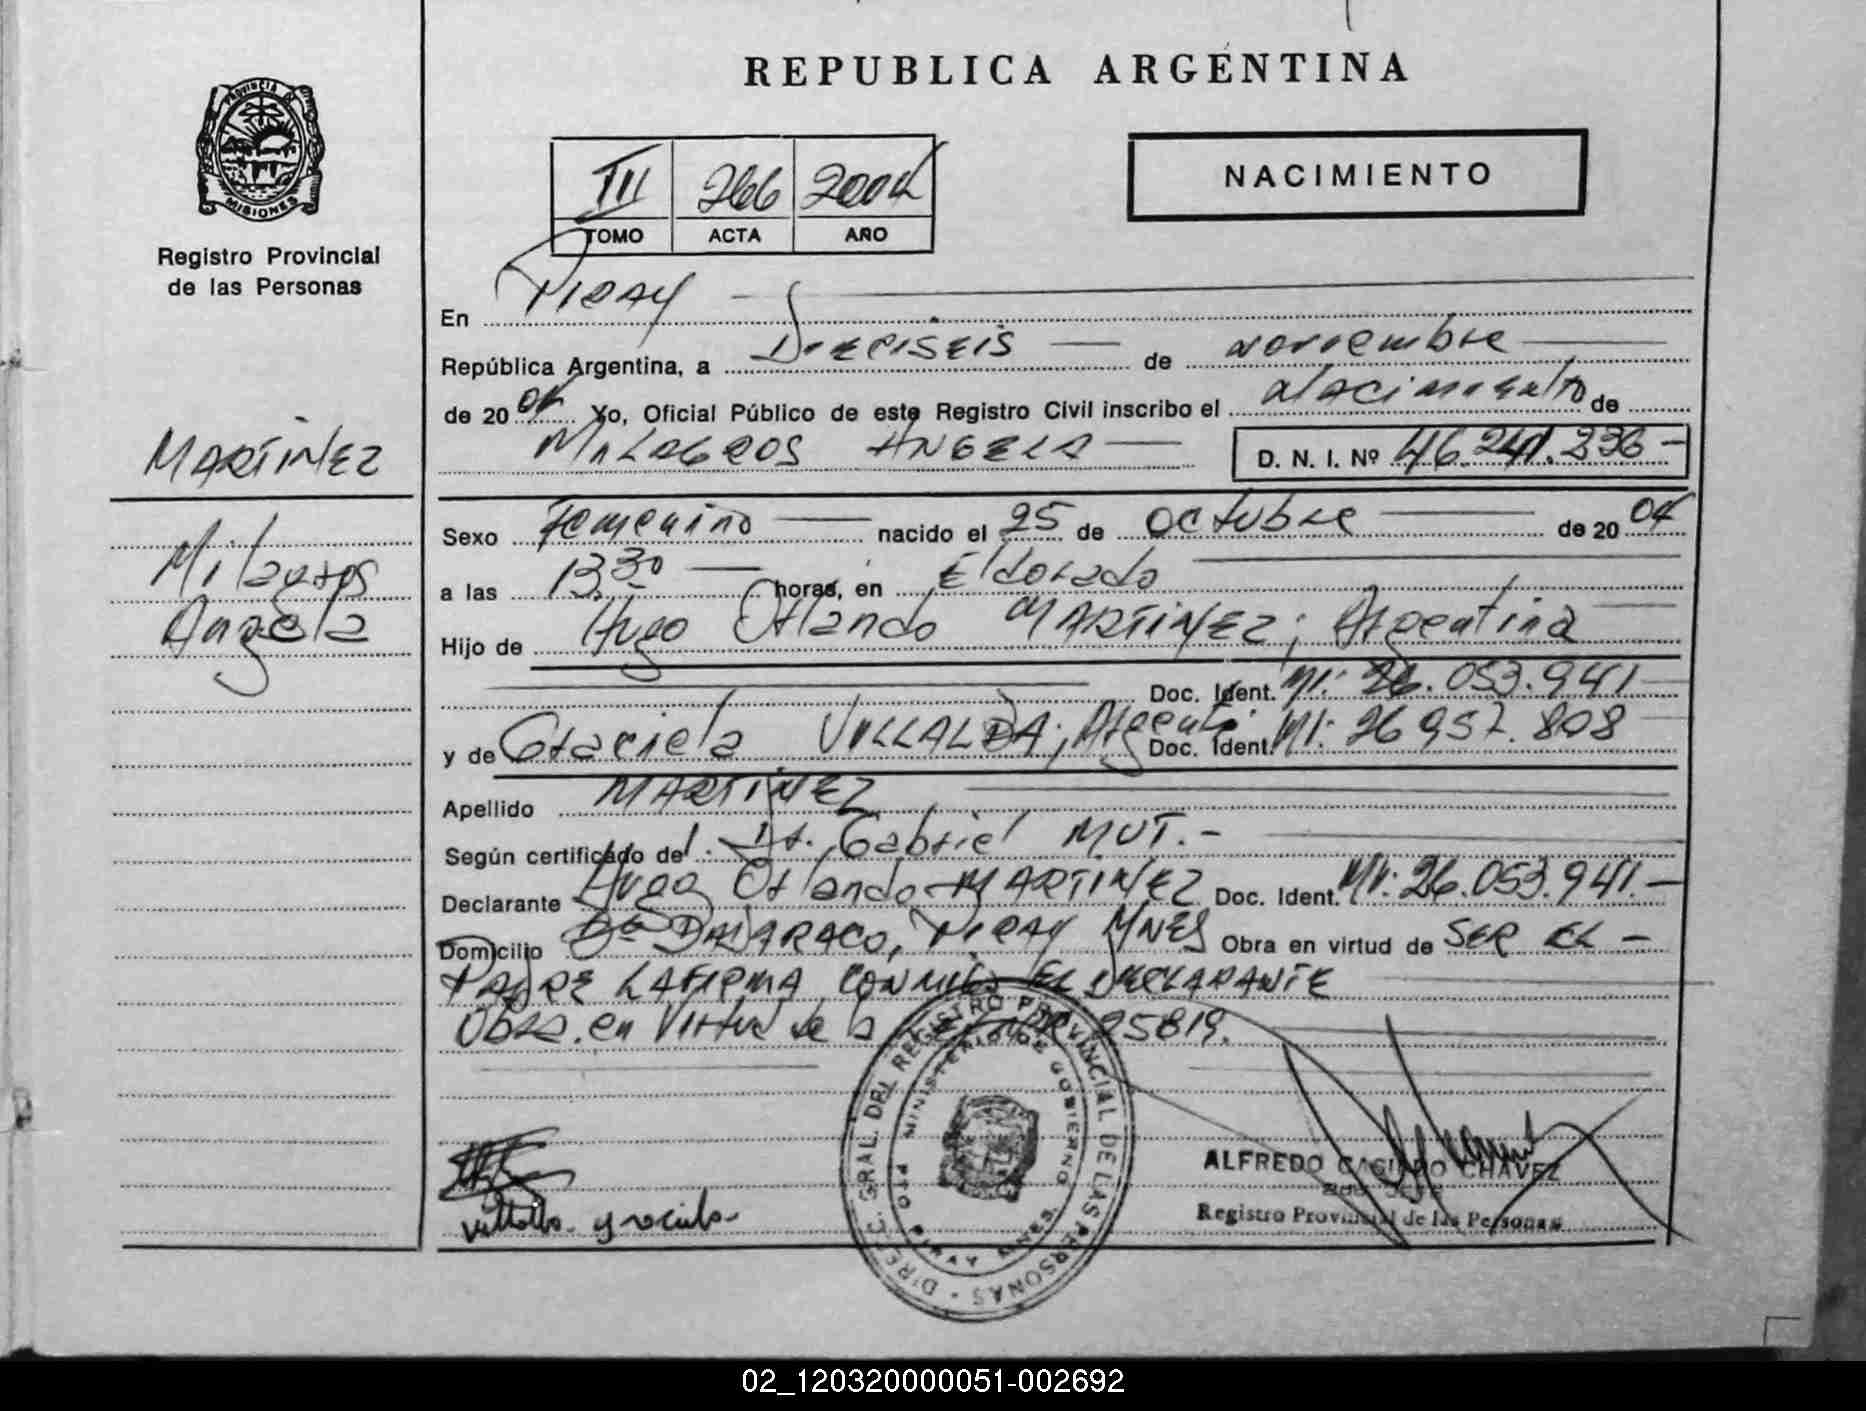 REPUBLICA ARGENTINA
PROVINCIA DE
MISIONES
Registro Provincial
de las Personas
III 266 2004
TOMO ACTA AÑO
NACIMIENTO
En PIRAY
República Argentina, a Dieciseis de noviembre
de 2004 Yo, Oficial Público de este Registro Civil inscribo el Nacimiento de
MILAGROS ANGELA D. N. I. Nº 46.241.336-
MARTINEZ
Milagros
Angela
Sexo Femenino nacido el 25 de octubre de 2004
a las 13,30 horas, en Eldorado
Hijo de Hugo Orlando MARTINEZ; Argentina
Doc. Ident. Nº: 26.053.941
y de Graciela VILLALBA; Argent. Doc. Ident. Nº: 26957.808
Apellido MARTINEZ
Según certificado del. Dr. Gabriel MUT.-
Declarante Hugo Orlando MARTINEZ Doc. Ident. Nº: 26.053.941.-
Domicilio Bº PIRAY MNES Obra en virtud de SER EL -
PADRE LA FIRMA CONMIGO EL DECLARANTE
Obra en virtud de la 25819.
DIREC. GRAL. DEL REGISTRO PROVINCIAL DE LAS PERSONAS -
MINISTERIO DE GOBIERNO
PTO PIRAY MNES.
Villalba graciela
ALFREDO CASIMIRO CHAVEZ
Registro Provincial de las Personas
02_120320000051-002692